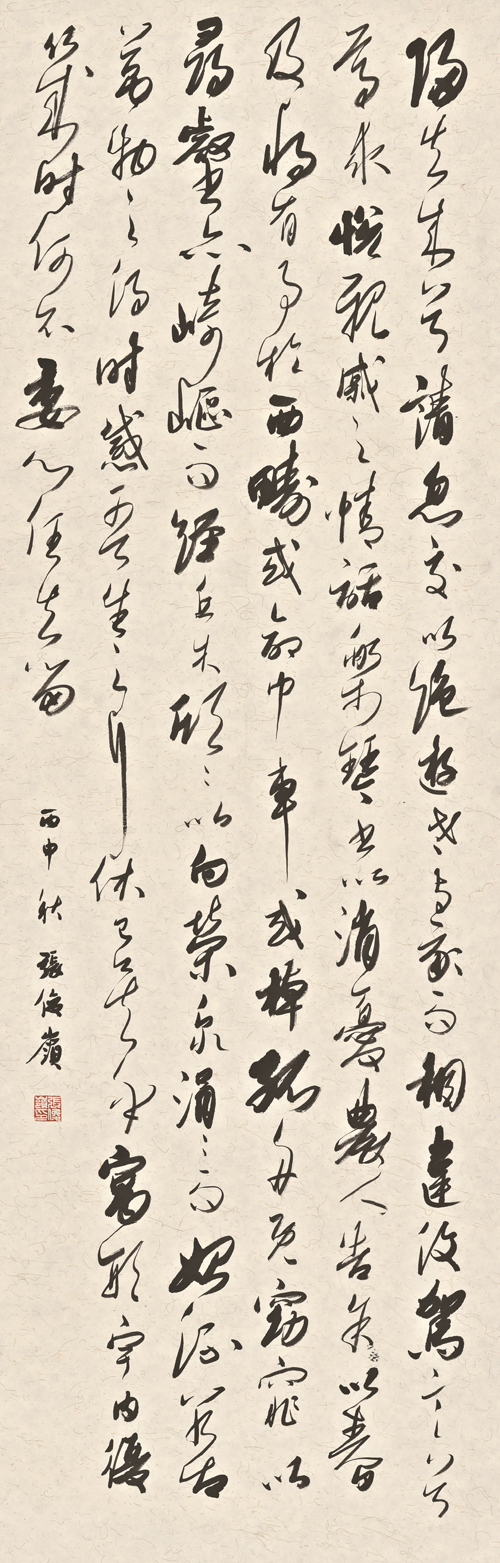 歸去來兮請息交以絕遊世與我而相違復駕言兮
焉求悅親戚之情話樂琴書以消憂農人告余以春
及將有事於西疇或命巾車或棹孤舟既窈窕以
尋壑亦崎嶇而經丘木欣欣以向榮泉涓涓而始流善
萬物之得時感吾生之行休已矣乎寓形宇內復
幾時何不委心任去留
丙申秋張俊嶺